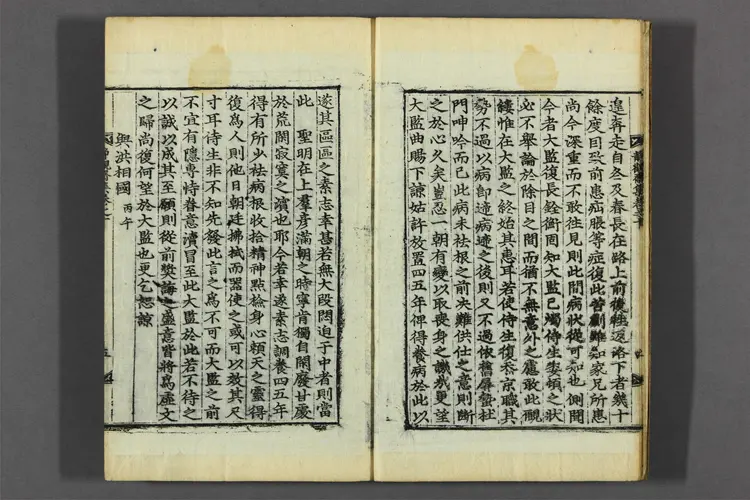 遑奔走自冬及春長在路上前後往返洛下者幾十
餘度因致前患疝脹等症復此普劇雖知家兄所患
尚今深重而不敢往見則此間病狀從可知也側聞
今者大監復長銓衡固知大監已燭侍生委頓之狀
必不舉論於除目之間而猶不無意外之慮敢此覼
縷惟在大監之終始其惠耳若使侍生復忝京職其
勢不過以病卸遞病遞之後則又不過依舊屛蟄杜
門呻吟而已此病未祛根之前决難供仕之意則斷
之於心久矣豈忍一朝有變以取喪身之譏哉更望
大監曲賜下諒姑許放置四五年俾得養病於此以
遂其區區之素志幸甚若無大段悶迫于中者則當
此 聖明在上羣彦滿朝之時寧肯獨自閑廢甘處
於荒閑寂寞之濱也耶今若幸遂素志調養四五年
得有所少祛病根收拾精神點檢身心賴天之靈得
復爲人則他日朝廷拂拭而器使之或可以效其尺
寸耳侍生非不知先發此言之爲不可而大監之前
不宜有隱專恃眷意瀆冒至此大監於此若不待之
以誠以成其至願則從前奬誨之盛意皆將爲虛文
之歸尚復何望於大監也更乞恕諒
與洪相國 丙午